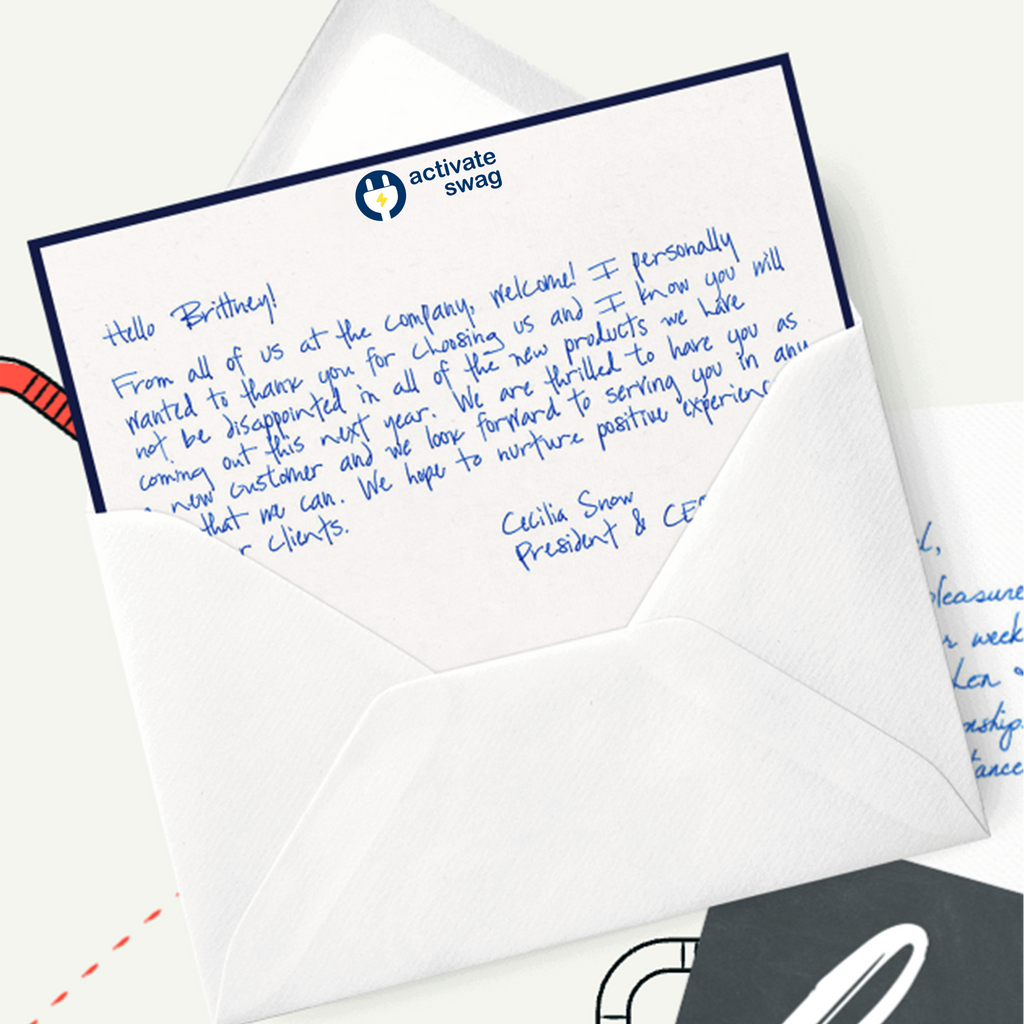 activate
swag
Hello Brittney!
From all of us at the company, welcome! I personally
wanted to thank you for choosing us and I know you will
not be disappointed in all of the new products we have
coming out this next year. We are thrilled to have you as
new customer and we look forward to serving you in any
that we can. We hope to nurture positive experienc
clients.
Cecilia Snow
President & CE
pleasure
week
tance